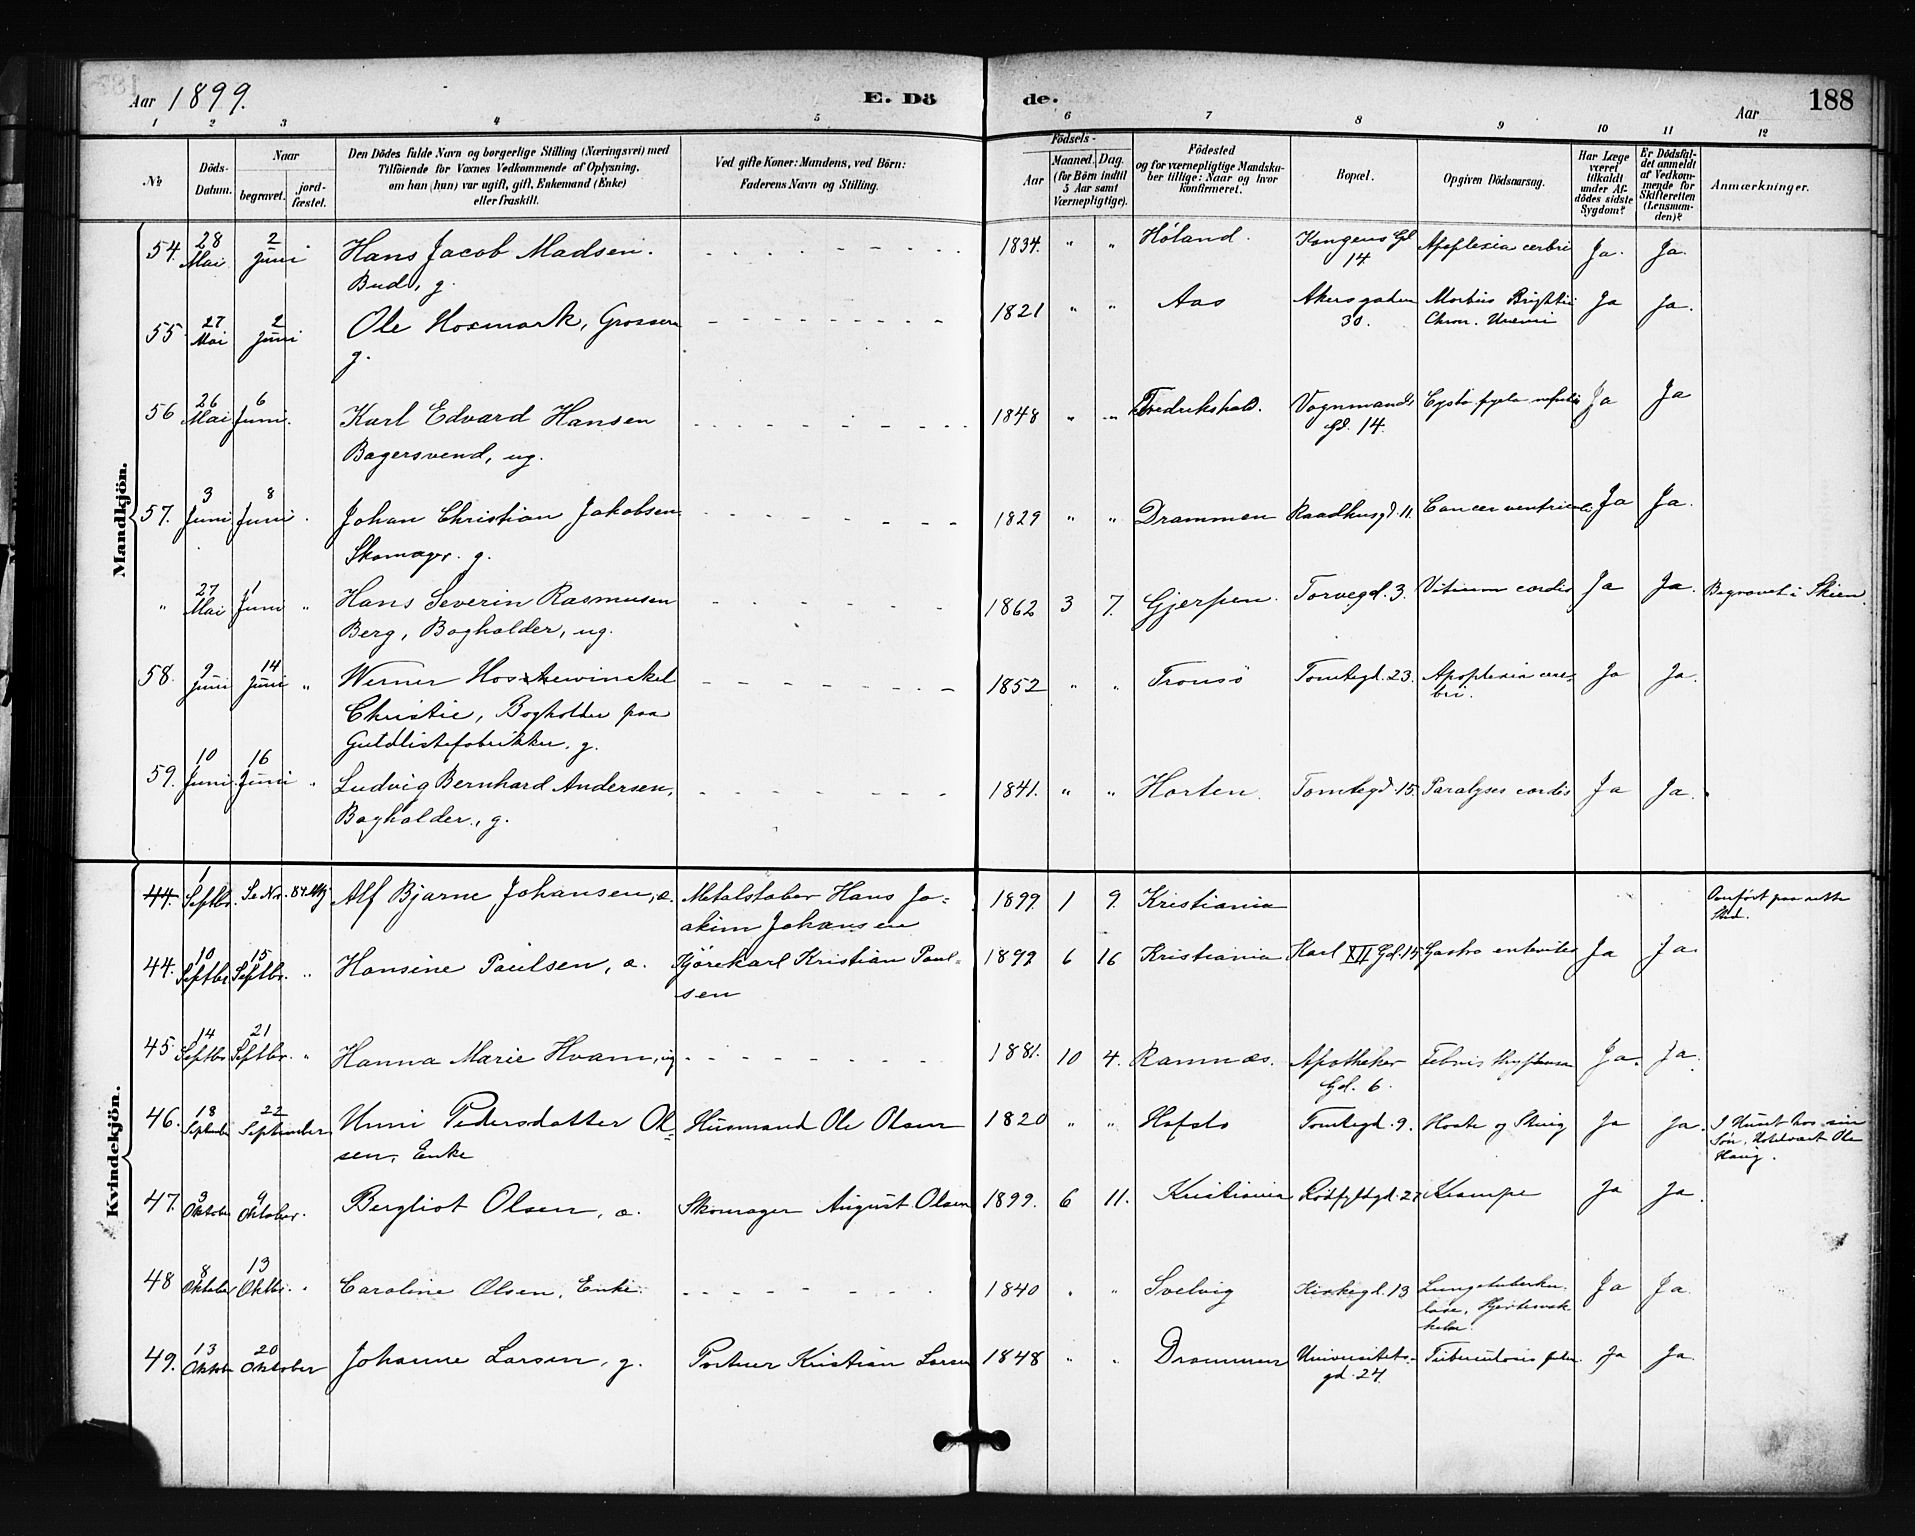 Aar 1899. E. Dö de. Aar 188
1 2 3 4 5 6 7 8 9 10 11 12
No
Döds-
Datum.
Naar
begravet.
jord-
fæstet.
Den Dödes fulde Navn og borgerlige Stilling (Næringsvei) med
Tilföiende for Voxnes Vedkommende af Oplysning,
om han (hun) var ugift, gift, Enkemand (Enke)
eller fraskilt.
Ved gifte Koner: Mandens, ved Børn:
Faderens Navn og Stilling.
Födsels-
Aar
Maaned. Dag.
(for Börn indtil
5 Aar samt
Værnepligtige).
Födested
og for værnepligtige Mandska-
ber tillige: Naar og hvor
konfirmeret.
Bopæl.
Opgiven Dödsaarsag.
Har Læge
været
tilkaldt
under Af-
dödes sidste
Sygdom?
Er Dödsfal-
det anmeldt
af Vedkom-
mende for
Skifteretten
(Lensman-
den)?
Anmærkninger.
Mandkjön.
54. 28 Mai 2 Juni Hans Jacob Madsen. 1834. " " Höland. Kongens Gd Apoplexia cerbri Ja. Ja.
Bud, g. 14.
55. 27 Mai 2 Juni Ole Hosmark, Grosserer 1821 " " Aas Akersgaden Morbus Brightii Ja Ja.
g. 30. Chron. Uremi
56 26 Mai 6 Juni. Karl Edvard Hansen 1848 " " Fredrikshald. Vognmands Cysto pyelo Ja Ja
Bagersvend, ug. Gd. 14.
57. 3 Juni 8 Juni. Johan Christian Jakobsen 1829 " " Drammen Raadhusgd. 11. Cancer Ja Ja.
Skomager. g.
" 27 Mai 1 Juni " Hans Severin Rasmusen 1862 3 7. Gjerpen. Torvegd. 3. Vitium cordis Ja Ja. Begravet i Skien.
Berg, Bogholder, ug.
58. 9 Juni 14 Juni " Werner Hosewinckel 1852 " " Tromsö Tomtegd. 23. Apoplexia cere- Ja Ja.
Christie, Bogholder paa bri.
Guldlistefabrikker, g.
59. 10 Juni. 16 Juni " Ludvig Bernhard Andersen, 1841. " " Horten. Tomtegd. 15. Paralyses cordis Ja Ja.
Bogholder., g.
Kvindekjön.
44. 1 Septbr. Se No. 84 Mkj Alf Bjarne Johansen, æ. Metalstøber Hans Jo- 1899. 1 9. Kristiania Omfört paa rette
akim Johansen Sted.
44. 10 Septbr 15 Septbr. " Hansine Paulsen, æ. Kjörekarl Kristian Paul- 1899 6 16 Kristiania Karl XII Gd. 15. Gastro enterites Ja Ja.
sen
45. 14 Septbr 21 Septbr. " Hanna Marie Hvam, ug 1881. 10 4. Ramnæs. Apotheker Febris Ja. Ja.
Gd. 6.
46. 18 September 22 September Unni Pedersdatter Ol- Husmand Ole Olsen 1820 " " Hafslo Tomtegd. 9. Hoste og Sting Ja Ja. I Huset hos sin
sen, Enke Sön, Ole
Haug.
47. 3 Oktober 9 Oktober. Bergliot Olsen, æ. Skomager August Olsen 1899. 6 11. Kristiania Rödfyldgd. 27 Krampe Ja Ja.
48 8 Oktober 13 Oktbr. " Caroline Olsen, Enke. 1840 " " Svelvig Kirkegd. 13 Lungetuberku- Ja Ja.
lose, Hjertesvæk-
kelse.
49. 13 Oktober 20 Oktober Johanne Larsen, g. Portner Kristian Larsen 1848 " " Drammen Universitets- Tuberculosis Ja Ja.
gd. 24.